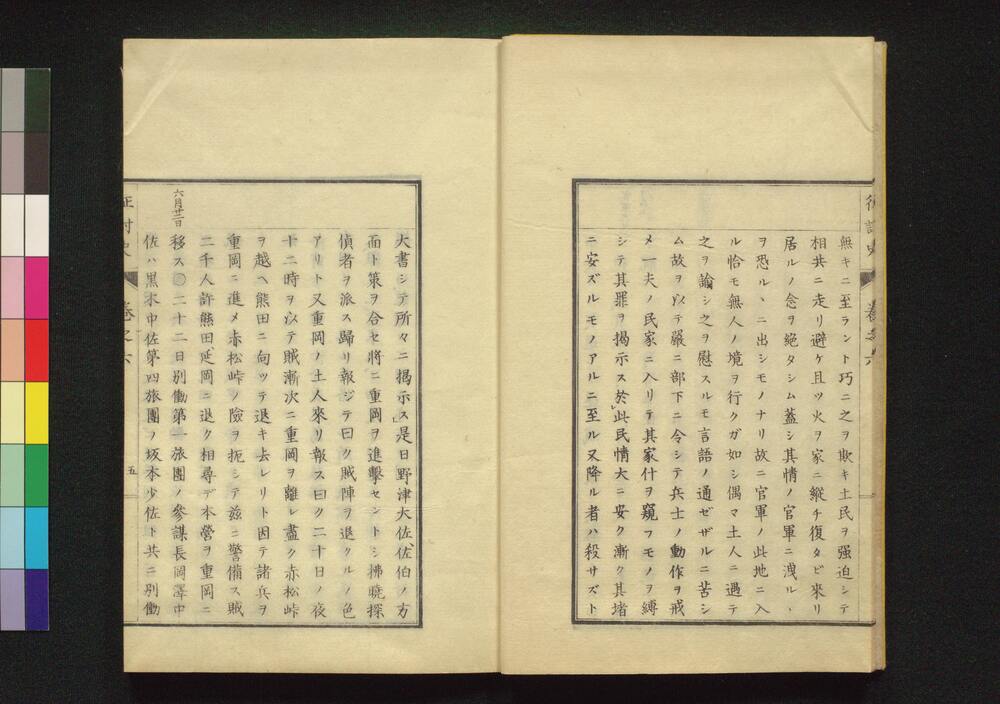 無キニ至ラント巧ニ之ヲ欺キ土民ヲ强迫シテ
相共ニ走リ避ケ且ツ火ヲ家ニ縱チ復タビ來リ
居ルノ念ヲ絕タシム蓋シ其情ノ官軍ニ洩ルヽ
ヲ恐ルヽニ出シモノナリ故ニ官軍ノ此地ニ入
ル恰モ無人ノ境ヲ行クガ如シ偶マ土人ニ遇テ
之ヲ諭シ之ヲ慰スルモ言語ノ通ゼザルニ苦シ
ム故ヲ以テ嚴ニ部下ニ令シテ兵士ノ動作ヲ戒
メ一夫ノ民家ニ入リテ其家什ヲ窺フモノヲ縛
シテ其罪ヲ揭示ス於此民情大ニ安ク漸ク其堵
ニ安ズルモノアルニ至ル又降ル者ハ殺サズト
大書シテ所々ニ揭示ス是日野津大佐佐伯ノ方
面ト策ヲ合セ將ニ重岡ヲ進擊セントシ拂曉探
偵者ヲ派ス歸リ報ジテ曰ク賊陣ヲ退クルノ色
アリト又重岡ノ土人來リ報ス曰ク二十日ノ夜
十二時ヲ以テ賊漸次ニ重岡ヲ離レ盡ク赤松峠
ヲ越ヘ熊田ニ向ツテ退キ去レリト因テ諸兵ヲ
重岡ニ進メ赤松峠ノ險ヲ扼シテ玆ニ警備ス賊
二千人許熊田延岡ニ退ク相尋デ本營ヲ重岡ニ
六月廿二日
移ス〇二十二日別働第一旅團ノ參謀長岡澤中
佐ハ黑木中佐第四旅團ノ坂本少佐ト共ニ別働
征討史
卷之六
五